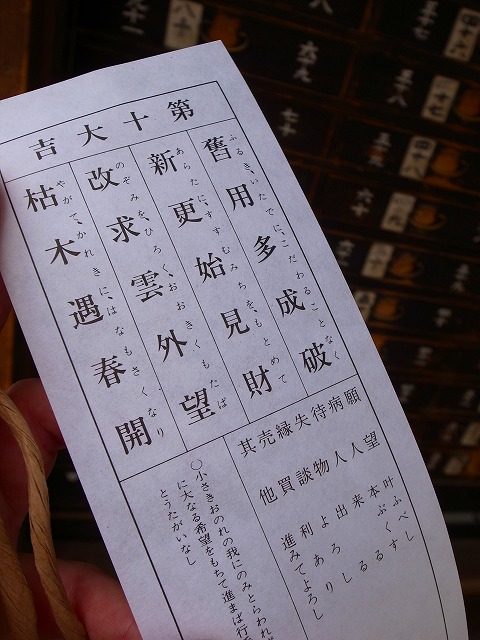 第十大吉
舊用多成破
ふるき、いたでに、こだわることなく
新更始見財
あらたに、すすむみちを、もとめて
改求雲外望
のぞみを、ひろく、おおきくもたば
枯木遇春開
やがて、かれきに、はなもさくなり
願望 叶ふべし
病人 本ぶくす
待人 来る
失物 出る
縁談 よろし
売買 利あり
其他 進みてよろし
〇小さきおのれの我にのみとらわれ
に大なる希望をもちて進まば行
とうたがいなし
四十六
五十七
四十七
五十八
四十八
六十九
七十
六十
八十
九十一